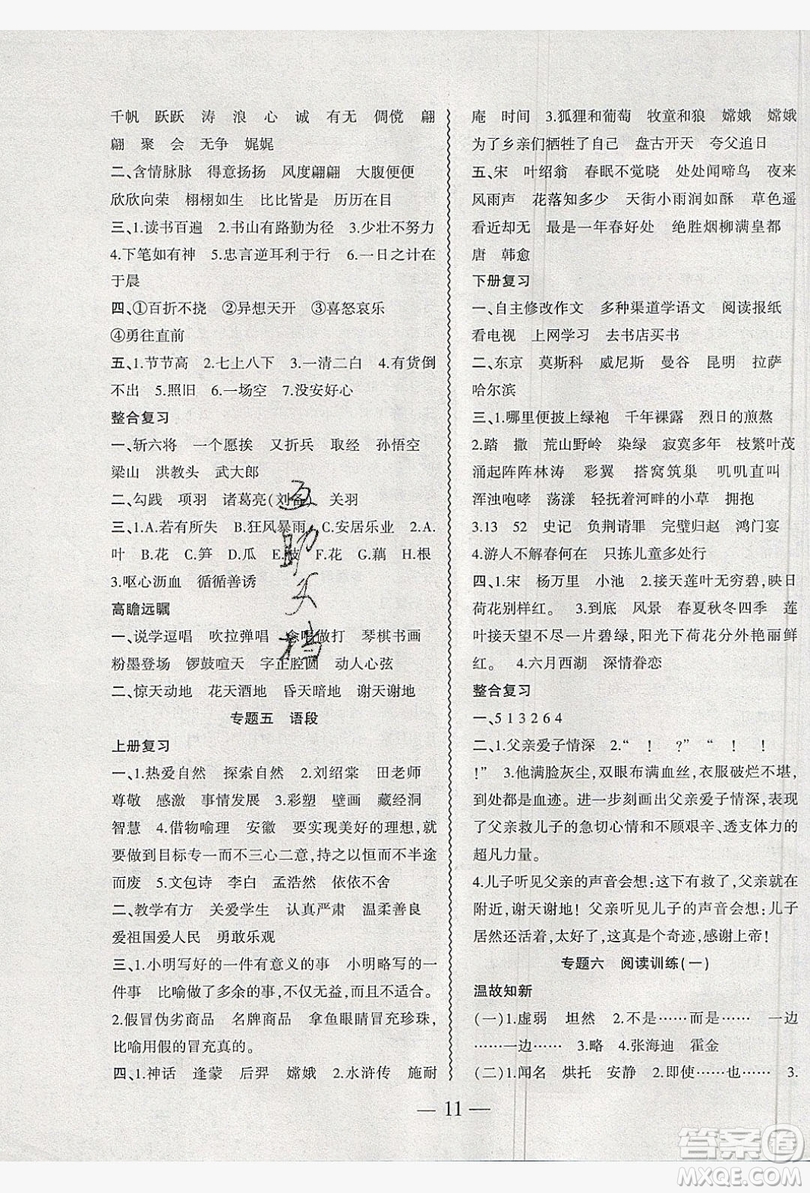 千帆 跃跃 涛 浪 心 诚 有无 倜傥 翩
翩 聚 会 无争 娓娓
二、含情脉脉 得意扬扬 风度翩翩 大腹便便
欣欣向荣 栩栩如生 比比皆是 历历在目
三、1.读书百遍 2.书山有路勤为径 3.少壮不努力
4.下笔如有神 5.忠言逆耳利于行 6.一日之计在
于晨
四、①百折不挠 ②异想天开 ③喜怒哀乐
④勇往直前
五、1.节节高 2.七上八下 3.一清二白 4.有货倒
不出 5.照旧 6.一场空 7.没安好心
整合复习
一、斩六将 一个愿挨 又折兵 取经 孙悟空
梁山 洪教头 武大郎
二、勾践 项羽 诸葛亮(刘备) 关羽
三、1.A.若有所失 B.狂风暴雨 C.安居乐业 2.A.
叶 B.花 C.笋 D.瓜 E.豆 F.花 G.藕 H.根
3.呕心沥血 循循善诱
高瞻远瞩
一、说学逗唱 吹拉弹唱 念唱做打 琴棋书画
粉墨登场 锣鼓喧天 字正腔圆 动人心弦
二、惊天动地 花天酒地 昏天暗地 谢天谢地
专题五 语段
上册复习
一、1.热爱自然 探索自然 2.刘绍棠 田老师
尊敬 感激 事情发展 3.彩塑 壁画 藏经洞
智慧 4.借物喻理 安徽 要实现美好的理想,就
要做到目标专一而不三心二意,持之以恒而不半途
而废 5.文包诗 李白 孟浩然 依依不舍
二、教学有方 关爱学生 认真严肃 温柔可亲
爱祖国爱人民 勇敢乐观
三、1.小明写好的一件有意义的事 小明略写的一
件事 比喻做了多余的事,不但无益,反而不合适。
2.假冒伪劣商品 名牌商品 拿鱼眼睛冒充珍珠,
比喻用假的冒充真的。
四、1.神话 逢蒙 后羿 嫦娥 2.水浒传 施耐
庵 时间 3.狐狸和葡萄 牧童和狼 嫦娥 嫦娥
为了乡亲们牺牲了自己 盘古开天 夸父追日
五、宋 叶绍翁 春眠不觉晓 处处闻啼鸟 夜来
风雨声 花落知多少 天街小雨润如酥 草色遥
看近却无 最是一年春好处 绝胜烟柳满皇都
唐 韩愈
下册复习
一、自主修改作文 多种渠道学语文 阅读报纸
看电视 上网学习 去书店买书
二、东京 莫斯科 威尼斯 曼谷 昆明 拉萨
哈尔滨
三、1.哪里便披上绿袍 千年裸露 烈日的煎熬
2.踏 撒 荒山野岭 染绿 寂寞多年 枝繁叶茂
涌起阵阵林涛 彩翼 搭窝筑巢 叽叽喳喳叫
浑浊咆哮 荡漾 轻抚着河畔的小草 拥抱
3.13 52 史记 负荆请罪 完璧归赵 鸿门宴
4.游人不解春何在 只拣儿童多处行
四、1.宋 杨万里 小池 2.接天莲叶无穷碧,映日
荷花别样红。 3.到底 风景 春夏秋冬四季 莲
叶接天望不尽一片碧绿,阳光下荷花分外艳丽鲜
红。 4.六月西湖 深情眷恋
整合复习
一、5 1 3 2 6 4
二、1.父亲爱子情深 2.“ ! ?”“ ! !
!” 3.他满脸灰尘,双眼布满血丝,衣服破烂不堪,
到处都是血迹。 进一步刻画出父亲爱子情深,突
出了父亲救儿子的急切心情和不顾艰险、透支体力的
超凡力量。
4.儿子听见父亲的声音会想:这下有救了,爸爸就在
附近,谢天谢地! 父亲听见儿子的声音会想:儿子
居然还活着,这真是个奇迹,感谢上帝!
专题六 阅读训练(一)
温故知新
(一)1.虚弱 坦然 2.不是……而是…… 一边
……一边…… 3.略 4.张海迪 霍金
(二)1.闻名 烘托 安静 2.即使……也…… 3.
— 11 —
答案圈
MXQE.COM